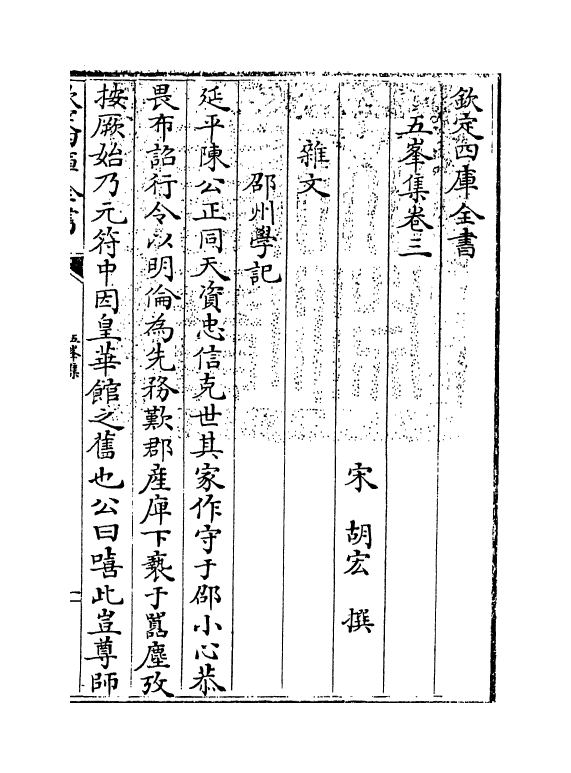 欽定四庫全書
五峯集卷三
宋 胡宏 撰
雜文
邵州學記
延平陳公正同天資忠信克世其家作守于邵小心恭
畏布詔行令以明倫為先務歎郡産庳下褻于囂塵攷
按厥始乃元符中因皇華館之舊也公曰嘻此豈尊師
五峯集